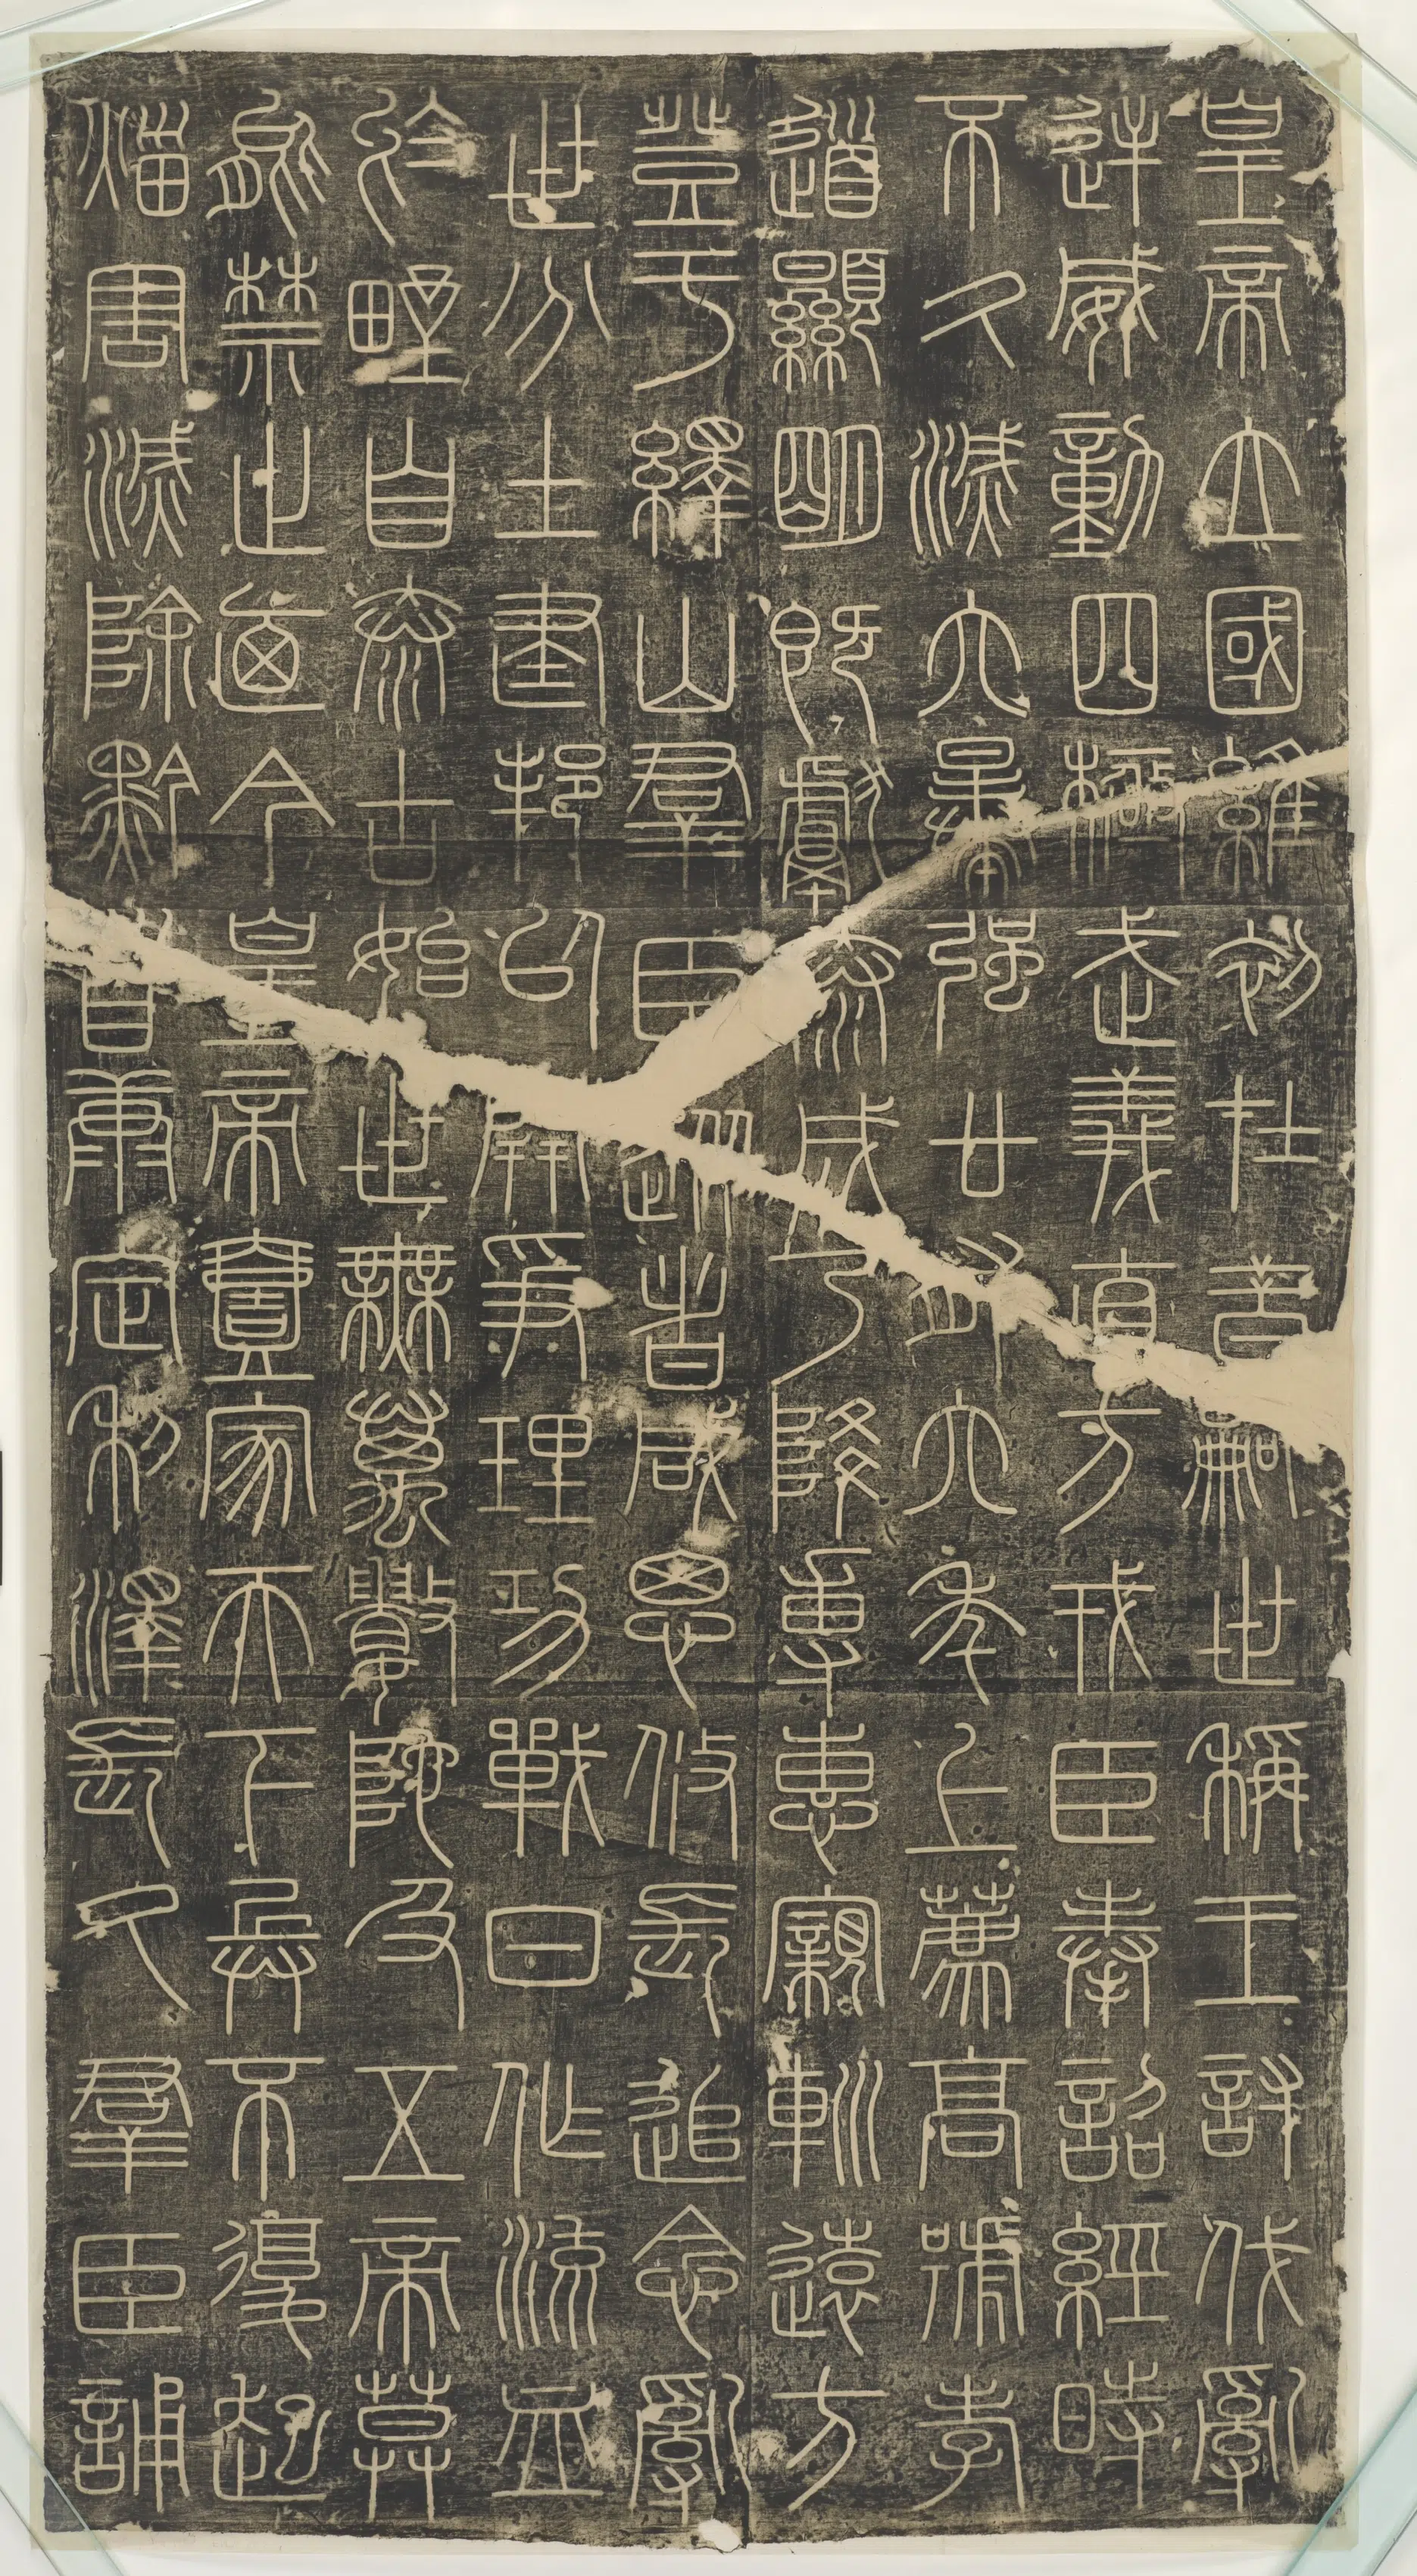 皇帝立國維初在昔嗣世稱王討伐亂
逆威動四極武義直方戎臣奉詔經時
不久滅六暴強廿有六年上薦高號孝
道顯明既獻泰成乃降專惠寴巡遠方
登于繹山群臣從者咸思攸長追念亂
世分土建邦以開爭理功戰日作流血
於野自泰古始世無萬數陀及五帝莫
能禁止迺今皇帝壹家天下兵不復起
災害滅除黔首康定利澤長久群臣誦